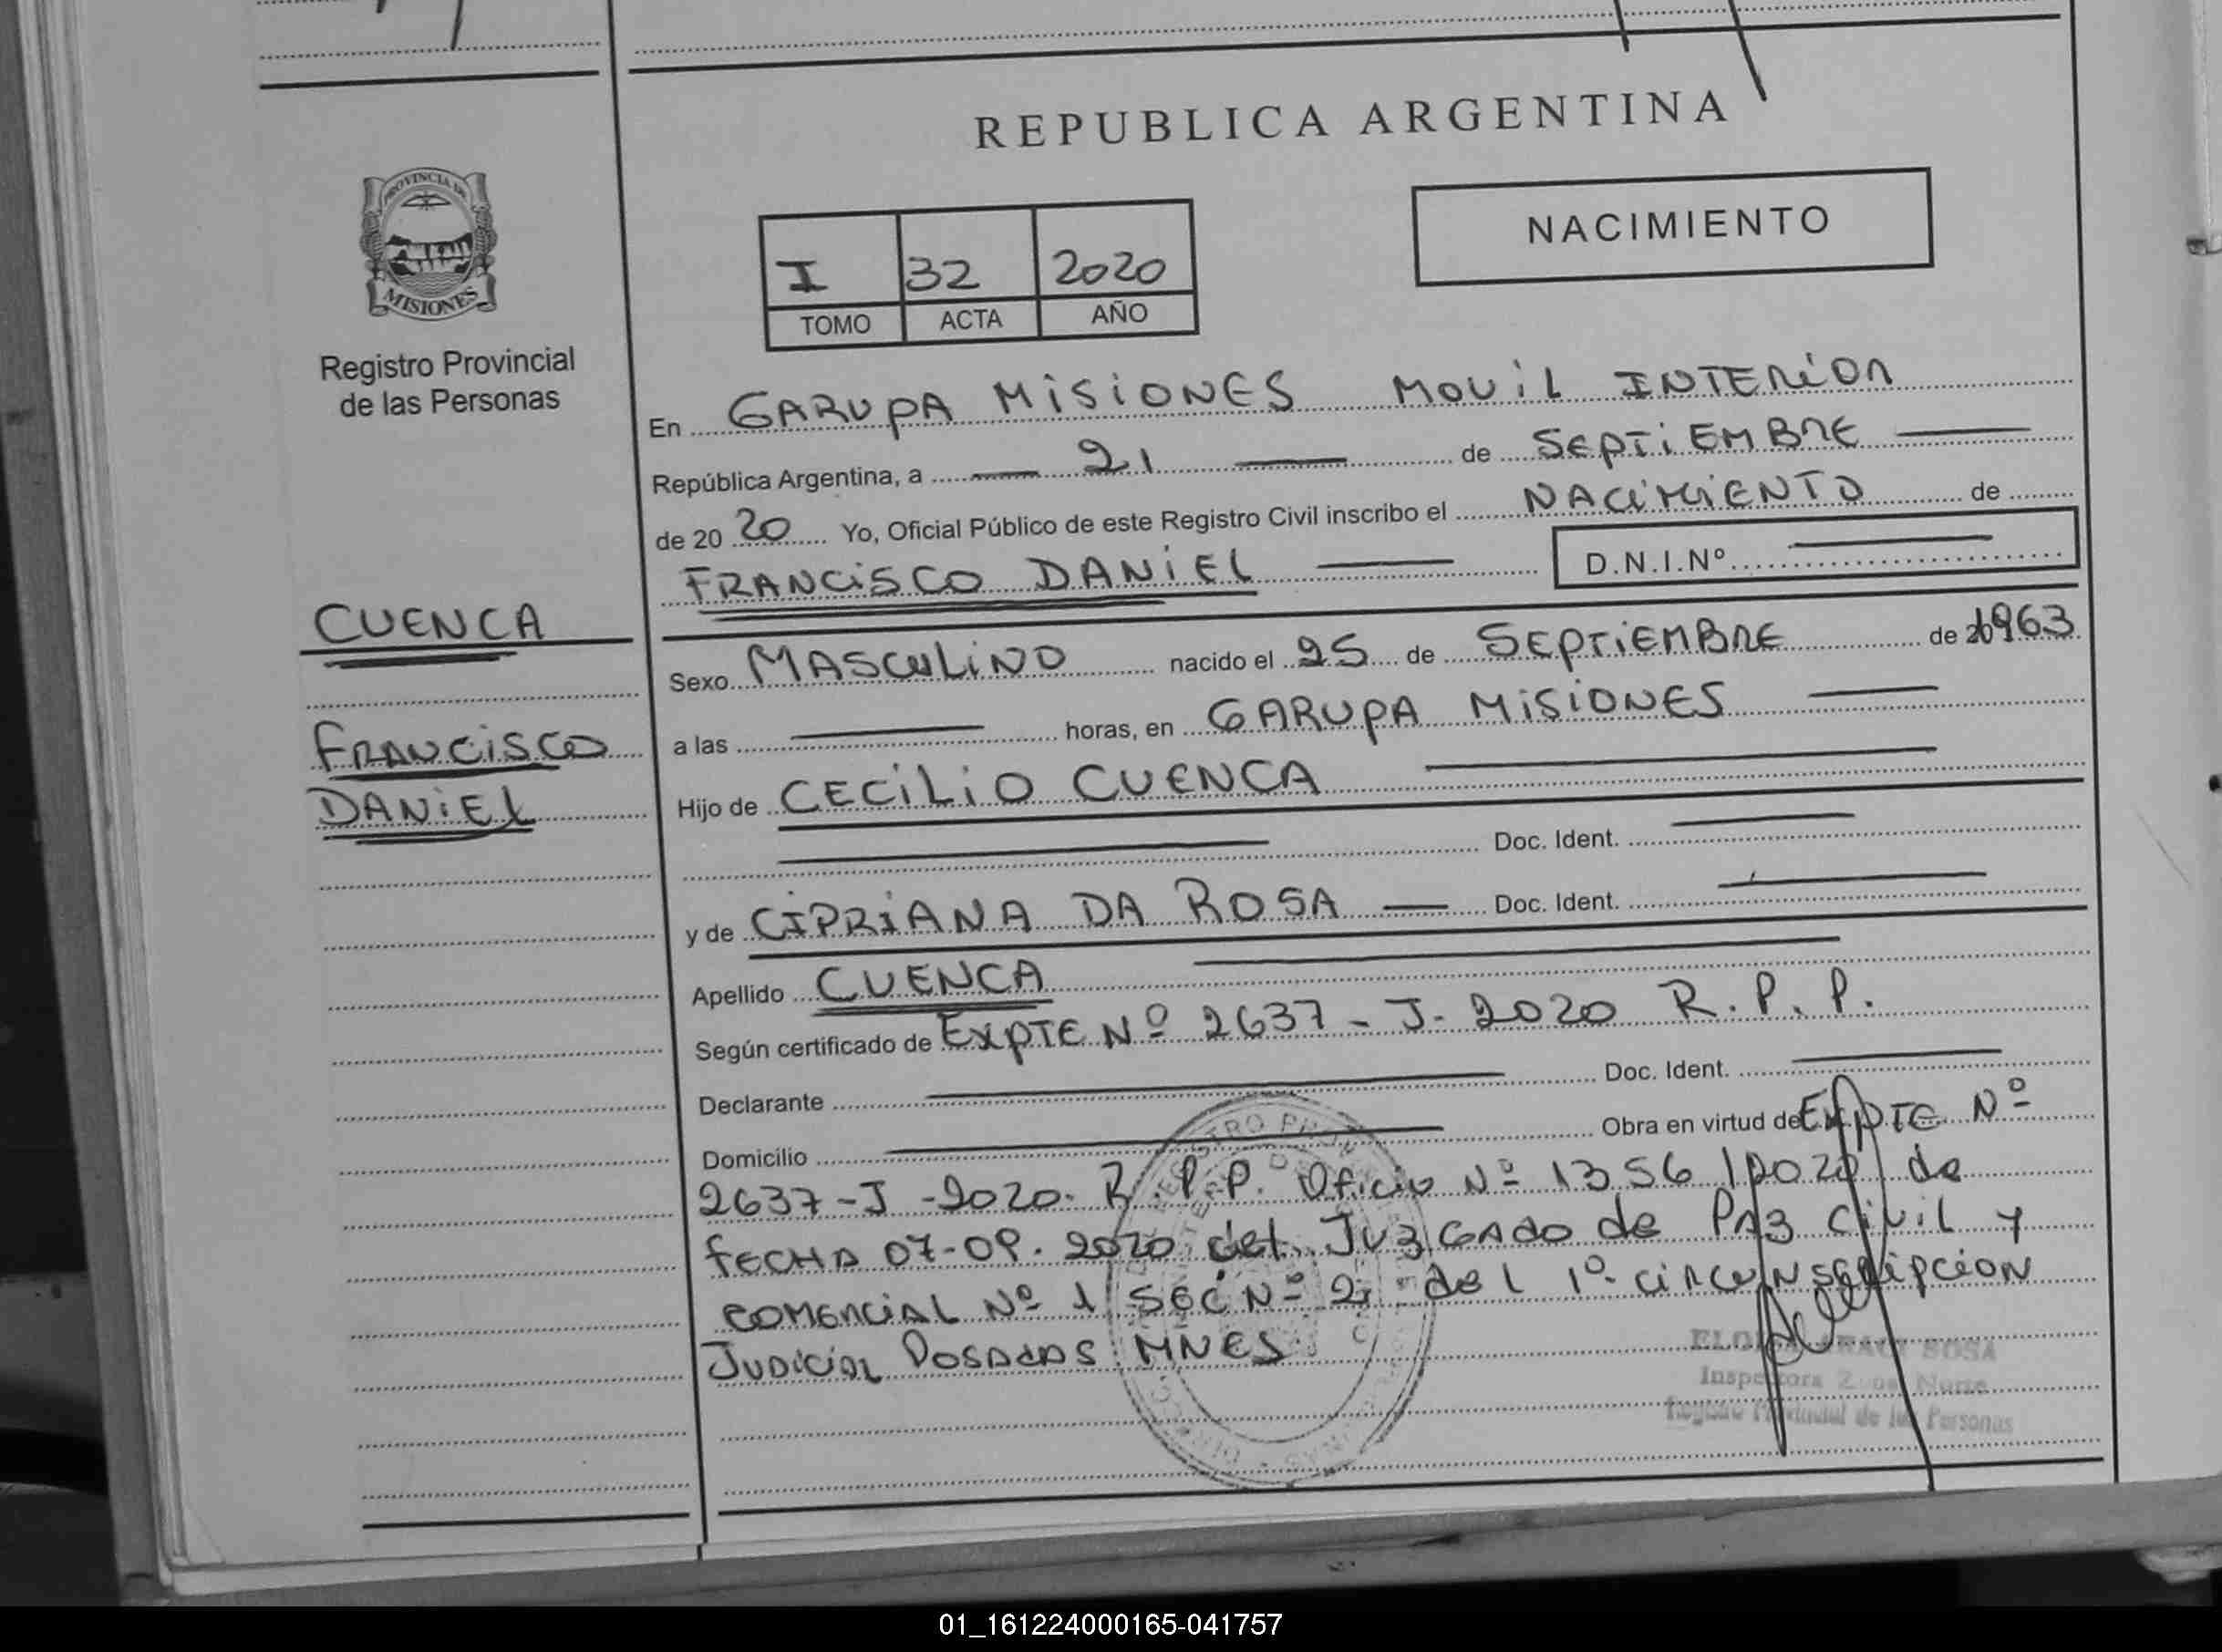 REPUBLICA ARGENTINA
NACIMIENTO
I 32 2020
TOMO ACTA AÑO
PROVINCIA DE
MISIONES
Registro Provincial
de las Personas
En GARUPA MISIONES MOVIL INTERIOR
República Argentina, a 21 de SEPTIEMBRE
de 20 20 Yo, Oficial Público de este Registro Civil inscribo el NACIMIENTO de
FRANCISCO DANIEL D.N.I.Nº
CUENCA
FRANCISCO
DANIEL
Sexo MASCULINO nacido el 25 de SEPTIEMBRE de 1963
a las horas, en GARUPA MISIONES
Hijo de CECILIO CUENCA
Doc. Ident.
y de CIPRIANA DA ROSA Doc. Ident.
Apellido CUENCA
Según certificado de EXPTE Nº 2637-J-2020 R.P.P.
Declarante Doc. Ident.
Domicilio Obra en virtud de EXPTE Nº
2637-J-2020. R.P.P. Oficio Nº 1356/2020 de
FECHA 07-09.2020 del JUZGADO de PAZ CIVIL Y
COMERCIAL Nº 1 SEC Nº 2 de l 1º CIRCUNSCRIPCION
JUDICIAL POSADAS MNES
SOSA
Inspectora Zona Norte
Registro Provincial de las Personas
01_161224000165-041757